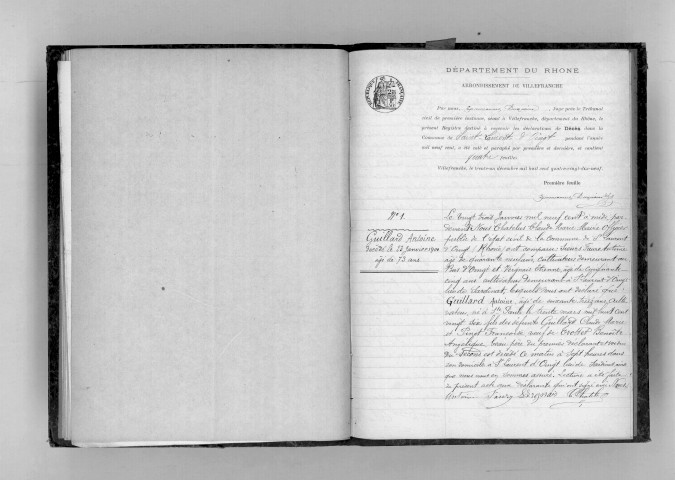 DÉPARTEMENT DU RHÔNE
ARRONDISSEMENT DE VILLEFRANCHE
RÉPUBLIQUE FRANÇAISE
Par nous, Juge près le Tribunal
civil de première instance, séant à Villefranche, département du Rhône, le
présent Registre destiné à recevoir les déclarations de Décès dans la
Commune de Saint Laurent d'Oingt pendant l'année
mil neuf cent, a été coté et paraphé par première et dernière, et contient
feuilles.
Villefranche, le trente-un décembre mil huit cent quatre-vingt-dix-neuf.
Première feuille
N° 1.
Guillard Antoine
Décédé le 23 Janvier 1900
âgé de 73 ans
Le vingt trois Janvier mil neuf cent à midi par
devant Nous Chatelus Claude Marie Maire Officier
public de l'état civil de la Commune de St Laurent
d'Oingt (Rhône) ont comparu: Antoine
âgé de quarante neuf ans, cultivateur demeurant au
Bois d'Oingt et Étienne, âgé de cinquante
cinq ans cultivateur demeurant à St Laurent d'Oingt
lesquels nous ont déclaré que
Guillard Antoine, âgé de soixante treize ans, culti-
vateur, né à Ste Paule le trente mars mil huit cent
vingt six fils des défunts Guillard Claude Marie
et Françoise veuf de Benoîte
Angélique, beau père du premier déclarant et voisin
du second est décédé ce matin à sept heures dans
son domicile à St Laurent d'Oingt ainsi
que nous nous en sommes assuré. Lecture a été faite
du présent acte aux déclarants qui ont signé avec Nous